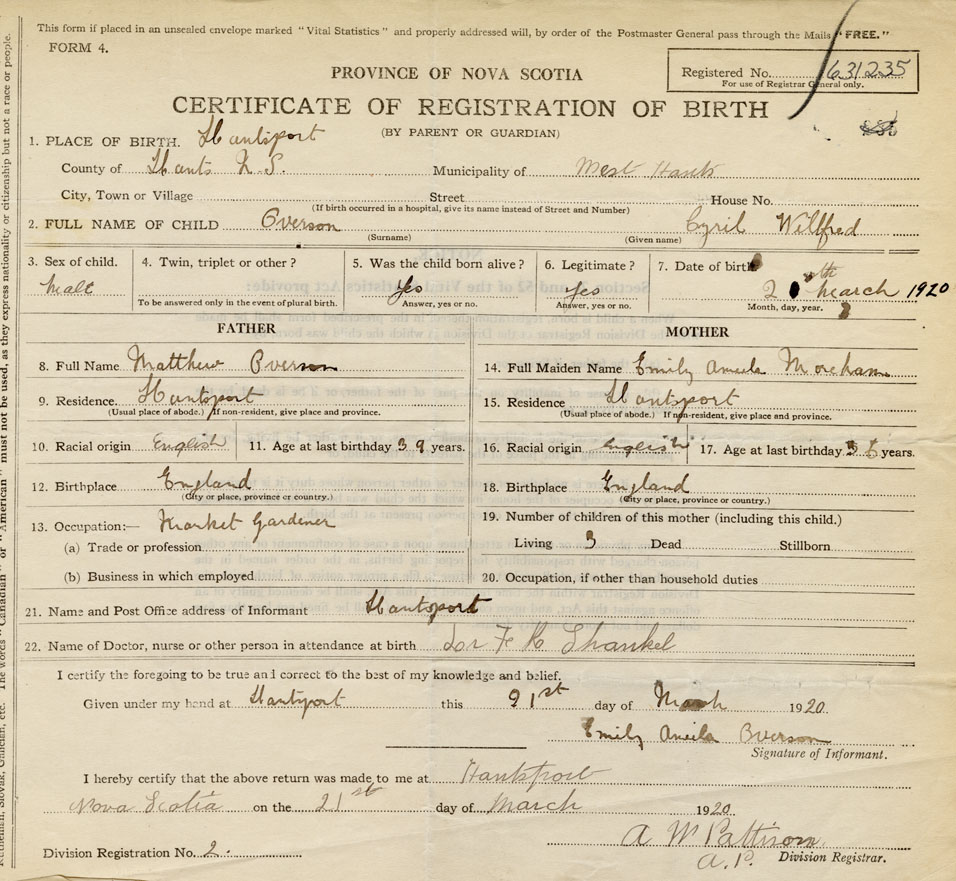 This form if placed in an unsealed envelope marked "Vital Statistics" and properly addressed will, by order of the Postmaster General pass through the Mails "FREE."
FORM 4.
Registered No. 631235
For use of Registrar General only.
PROVINCE OF NOVA SCOTIA
CERTIFICATE OF REGISTRATION OF BIRTH
(BY PARENT OR GUARDIAN)
1. PLACE OF BIRTH. Hantsport
County of Hants N.S. Municipality of West Hants
City, Town or Village Street House No.
(If birth occurred in a hospital, give its name instead of Street and Number)
2. FULL NAME OF CHILD Overson Cyril Willfred
(Surname) (Given name)
3. Sex of child. 4. Twin, triplet or other? 5. Was the child born alive? 6. Legitimate? 7. Date of birth
Male Yes Yes 2 th March 1920
To be answered only in the event of plural birth. Answer, yes or no. Answer, yes or no. Month, day, year.
FATHER MOTHER
8. Full Name Matthew Overson
9. Residence. Hantsport
(Usual place of abode.) If non-resident, give place and province.
10. Racial origin English 11. Age at last birthday 39 years.
12. Birthplace England
(City or place, province or country.)
13. Occupation:— Market Gardener
(a) Trade or profession
(b) Business in which employed
14. Full Maiden Name Emily Ameila Moreham
15. Residence Hantsport
(Usual place of abode.) If non-resident, give place and province.
16. Racial origin English 17. Age at last birthday 36 years.
18. Birthplace England
(City or place, province or country.)
19. Number of children of this mother (including this child.)
Living 3 Dead Stillborn
20. Occupation, if other than household duties
21. Name and Post Office address of Informant Hantsport
22. Name of Doctor, nurse or other person in attendance at birth Dr F H Shankel
I certify the foregoing to be true and correct to the best of my knowledge and belief.
Given under my hand at Hantsport this 21st day of March 1920
Emily Ameila Overson
Signature of Informant.
I hereby certify that the above return was made to me at Hantsport
Nova Scotia on the 21st day of March 1920
A W Pattison
A.P. Division Registrar.
Division Registration No. 2.
The words "Canadian" or "American" must not be used, as they express nationality or citizenship but not a race or people.